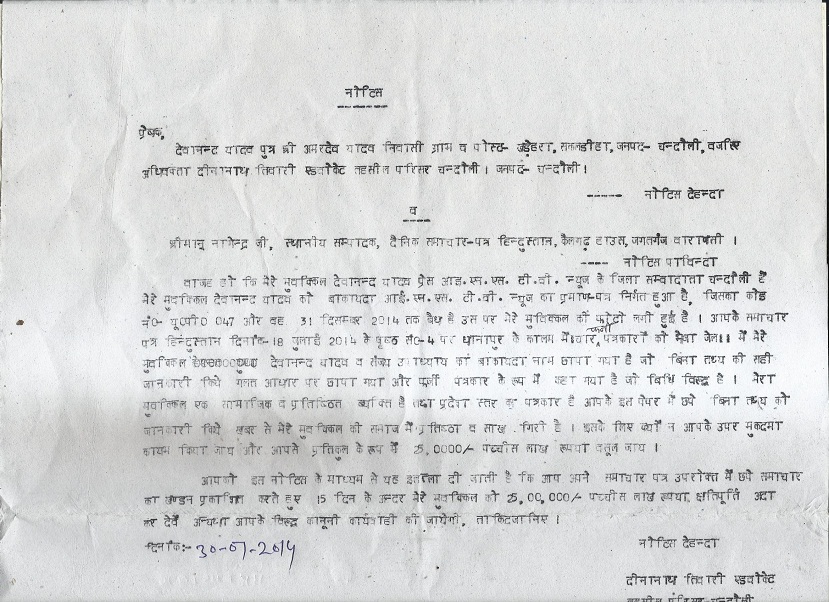 नोटिस
प्रेषक,
देवानन्द यादव पुत्र श्री अमरदेव यादव निवासी ग्राम व पोस्ट- डेहरा, सकलडीहा, जनपद- चन्दौली, वजरिए
अधिवक्ता दीनानाथ तिवारी एडवोकेट तहसील परिसर चन्दौली । जनपद- चन्दौली ।
----- नोटिस देहन्दा
व
श्रीमान् नागेन्द्र जी, स्थानीय सम्पादक, दैनिक समाचार-पत्र हिन्दुस्तान, कैलगढ़ हाउस, जगतगंज वाराणसी ।
---- नोटिस पाविन्दा
वाजह हो कि मेरे मुवक्किल देवानन्द यादव प्रेस आइ.एन.एस. टी.वी. न्यूज के जिला सम्वादाता चन्दौली है
मेरे मुवक्किल देवानन्द यादव को बाकायदा आई.एन.एस. टी.वी. न्यूज का प्रमाण-पत्र निर्गत हुआ है, जिसका कोड
नं0- यू0पी0 047 और वह 31 दिसम्बर 2014 तक वैध है उस पर मेरे मुवक्किल की फोटो लगी हुई है । आपके समाचार
पत्र हिन्दुस्तान दिनांक-18 जुलाई 2014 के पृष्ठ सं0-4 पर धानापुर के कालम में।।चार, फर्जी पत्रकारों को भेजा जेल।। में मेरे
मुवक्किल देवानन्द यादव व संजय उपाध्याय का बाकायदा नाम छापा गया है जो बिना तथ्य की सही
जानकारी किये गलत आधार पर छापा गया और फर्जी पत्रकार के रूप में कहा गया है जो विधि विरूद्ध है । मेरा
मुवक्किल एक सामाजिक व प्रतिष्ठित व्यक्ति है तथा प्रदेश स्तर का पत्रकार है आपके इस पेपर में छपे बिना तथ्य को
जानकारी किये खबर से मेरे मुवक्किल की समाज में प्रतिष्ठा व साख गिरी है । इसके लिए क्यों न आपके उपर मुकदमा
कायम किया जाय और आपसे प्रतिकुल के रूप में 25,0000/- पच्चीस लाख रूपया वसूल जाय ।
आपको इस नोटिस के माध्यम से यह इत्तला दी जाती है कि आप अपने समाचार पत्र उपरोक्त में छपे समाचार
का खण्डन प्रकाशित करते हुए 15 दिन के अन्दर मेरे मुवक्किल को 25,00,000/- पच्चीस लाख रूपया, क्षतिपूर्ति अदा
कर देवें अन्यथा आपके विरूद्ध कानूनी कार्यवाही की जायेगी, ताकिदजानिए ।
दिनांक:- 30-07-2014
नोटिस देहन्दा
दीनानाथ तिवारी एडवोकेट
तहसील परिसर-चन्दौली